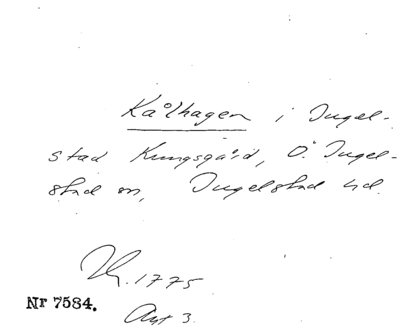 Kålhagen i Ingel-
stad Kungsgård, Ö. Ingel-
stad sn, Ingelstad hd.
1775
Nr 7584.
Akt 3.